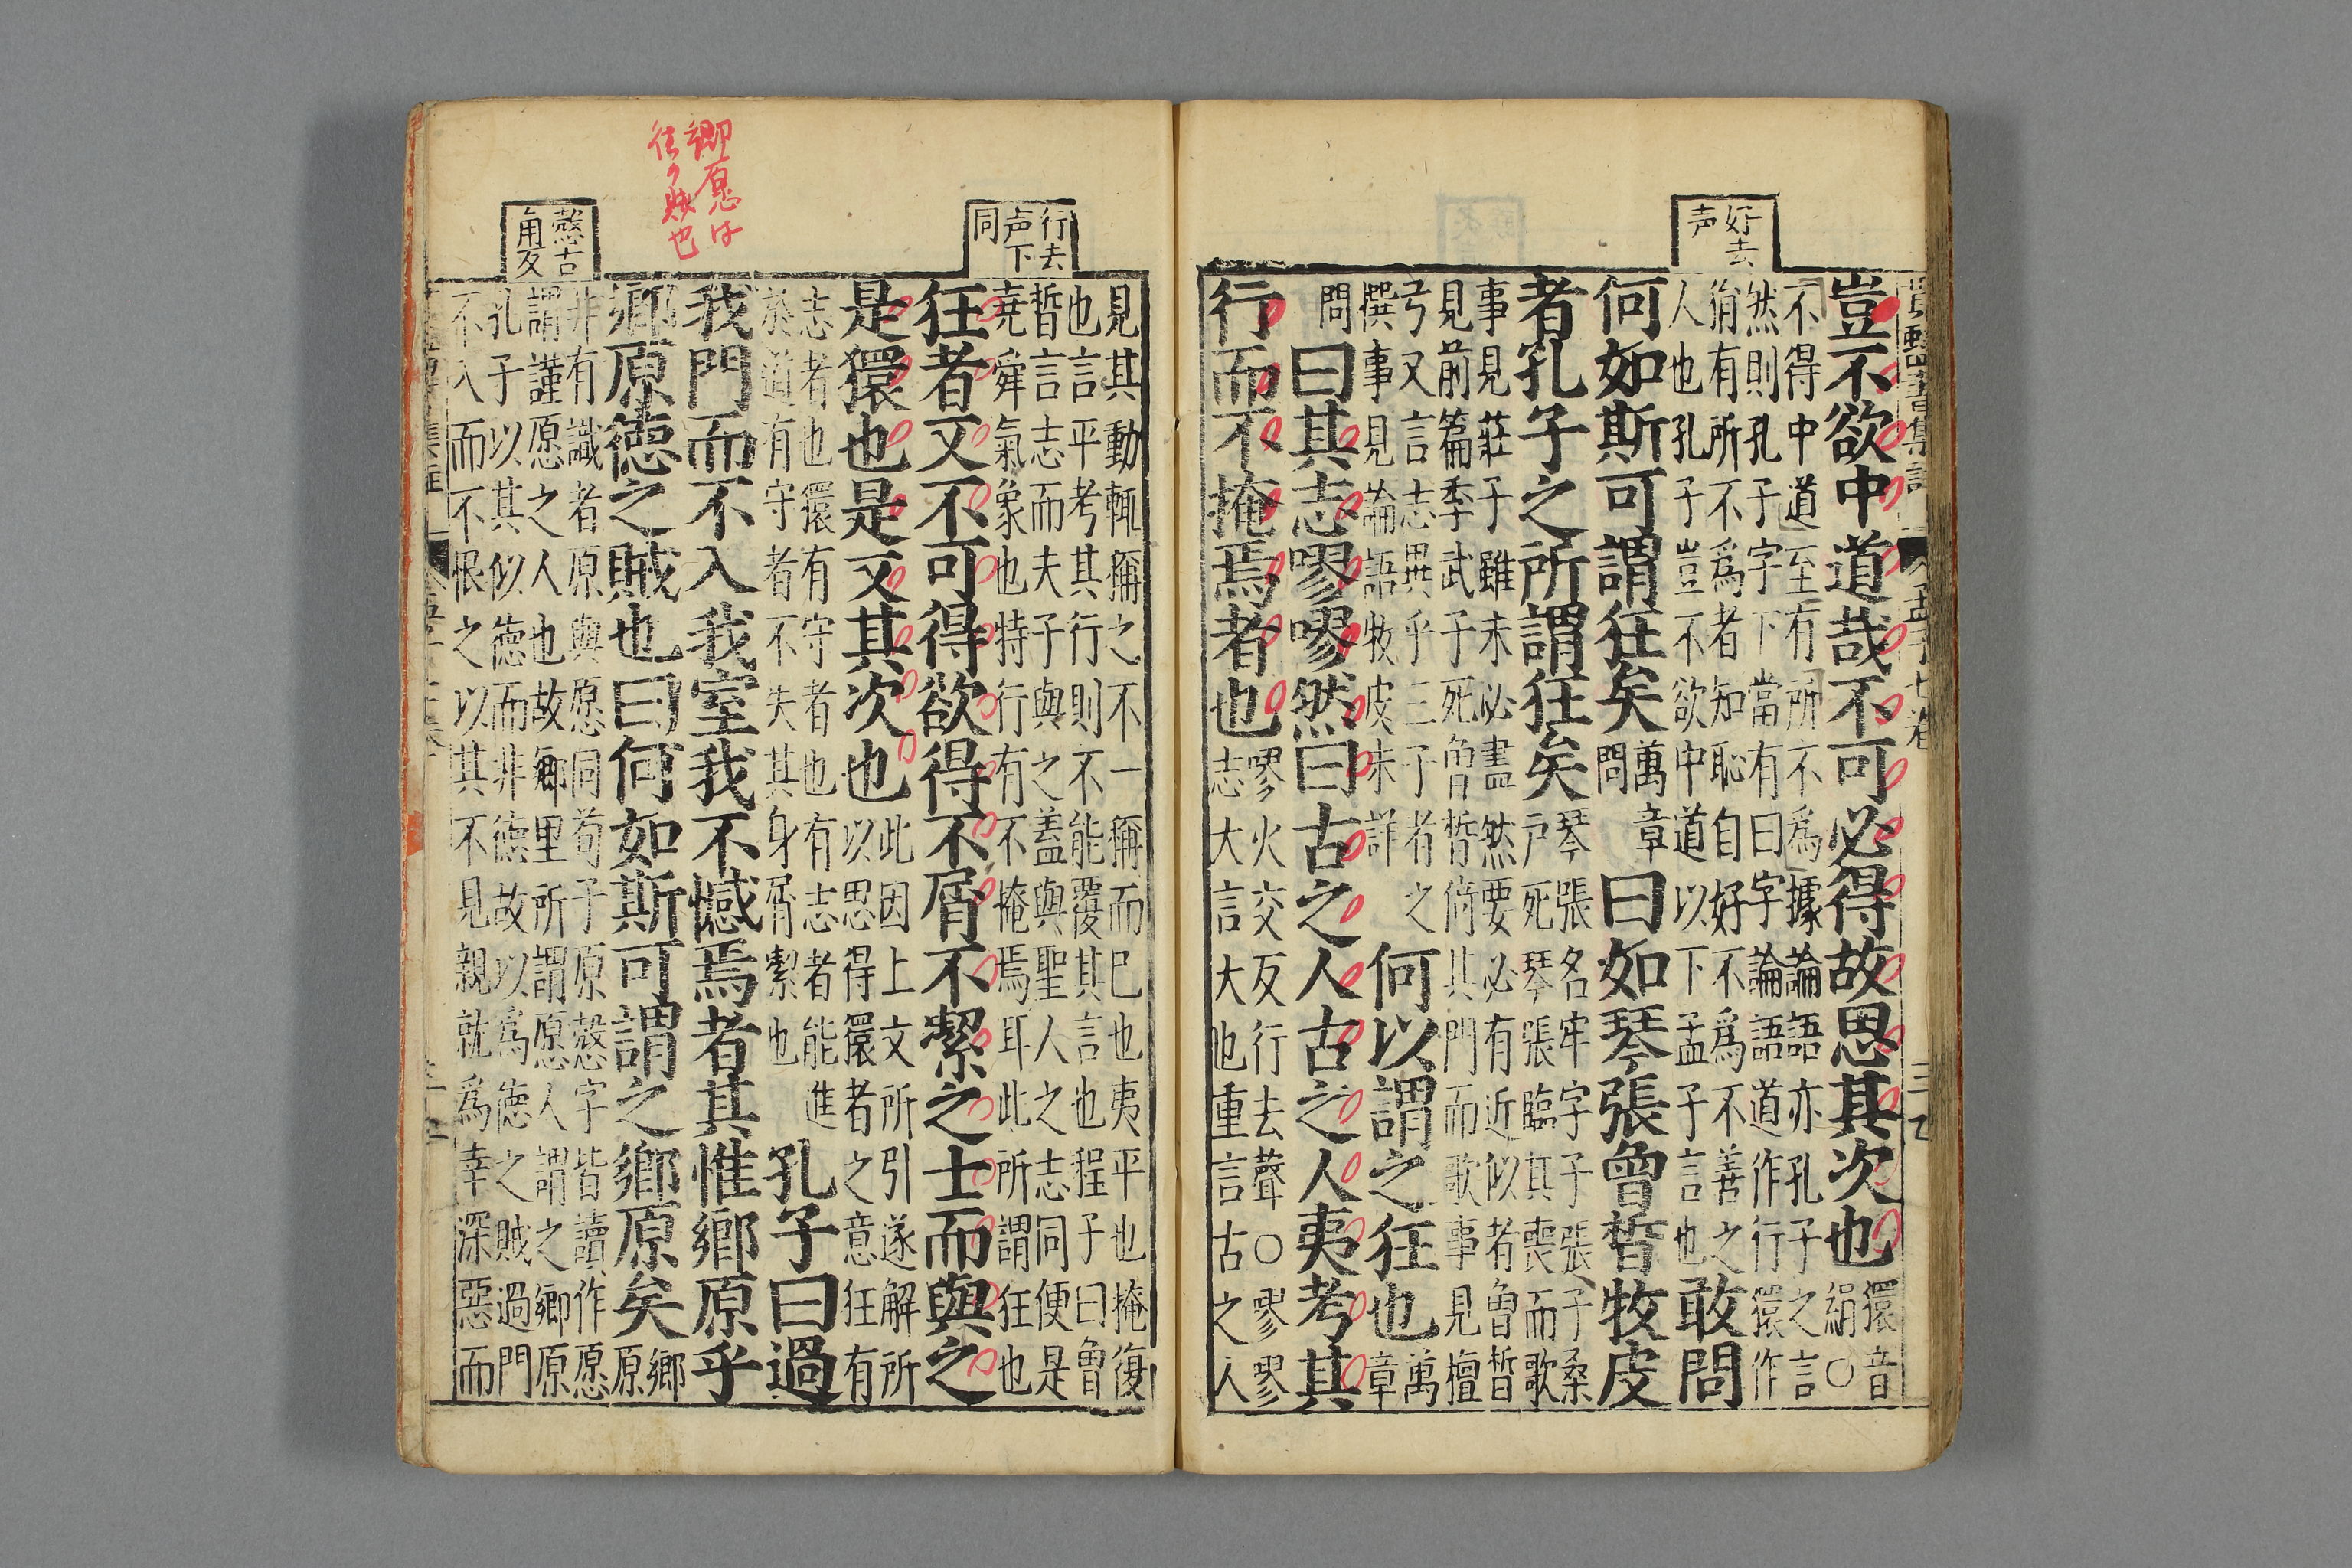 好去
声
豈不欲中道哉不可必得故思其次也獧音
絹〇
不得中道至有所不為據論語亦孔子之言
然則孔子字下當有曰字論語道作行獧作
狷有所不為者知恥自好不為不善之
人也孔子豈不欲中道以下孟子言也
敢問
何如斯可謂狂矣
萬章
問
曰如琴張曾晳牧皮
者孔子之所謂狂矣
琴張名牢字子張、子桑
戸死琴張臨其喪而歌
事見莊子雖未必盡然要必有近似者曾晳
見前篇季武子死曾晳倚其門而歌事見檀
弓又言志異乎三子者之
撰事見論語牧皮未詳
何以謂之狂也
萬
章
問
曰其志嘐嘐然曰古之人古之人夷考其
行而不掩焉者也
嘐火交反行去聲〇嘐嘐
志大言大也重言古之人
行去
声下
同
鄉原は
徳の賊也
慤古
角反
見其動輒稱之不一稱而已也夷平也掩復
也言平考其行則不能覆其言也程子曰曾
晳言志而夫子與之蓋與聖人之志同便是
堯舜氣象也特行有不掩焉耳此所謂狂也
狂者又不可得欲得不屑不潔之士而與之
是獧也是又其次也
此因上文所引遂解所
以思得獧者之意狂有
志者也獧有守者也有志者能進
於道有守者不失其身屑潔也
孔子曰過
我門而不入我室我不憾焉者其惟鄉原乎
鄉原德之賊也曰何如斯可謂之鄉原矣
鄉
原
非有識者原與愿同荀子原慤字皆讀作愿
謂謹愿之人也故鄉里所謂愿人謂之鄉原
孔子以其似德而非德故以為德之賊過門
不入而不恨之以其不見親就為幸深惡而